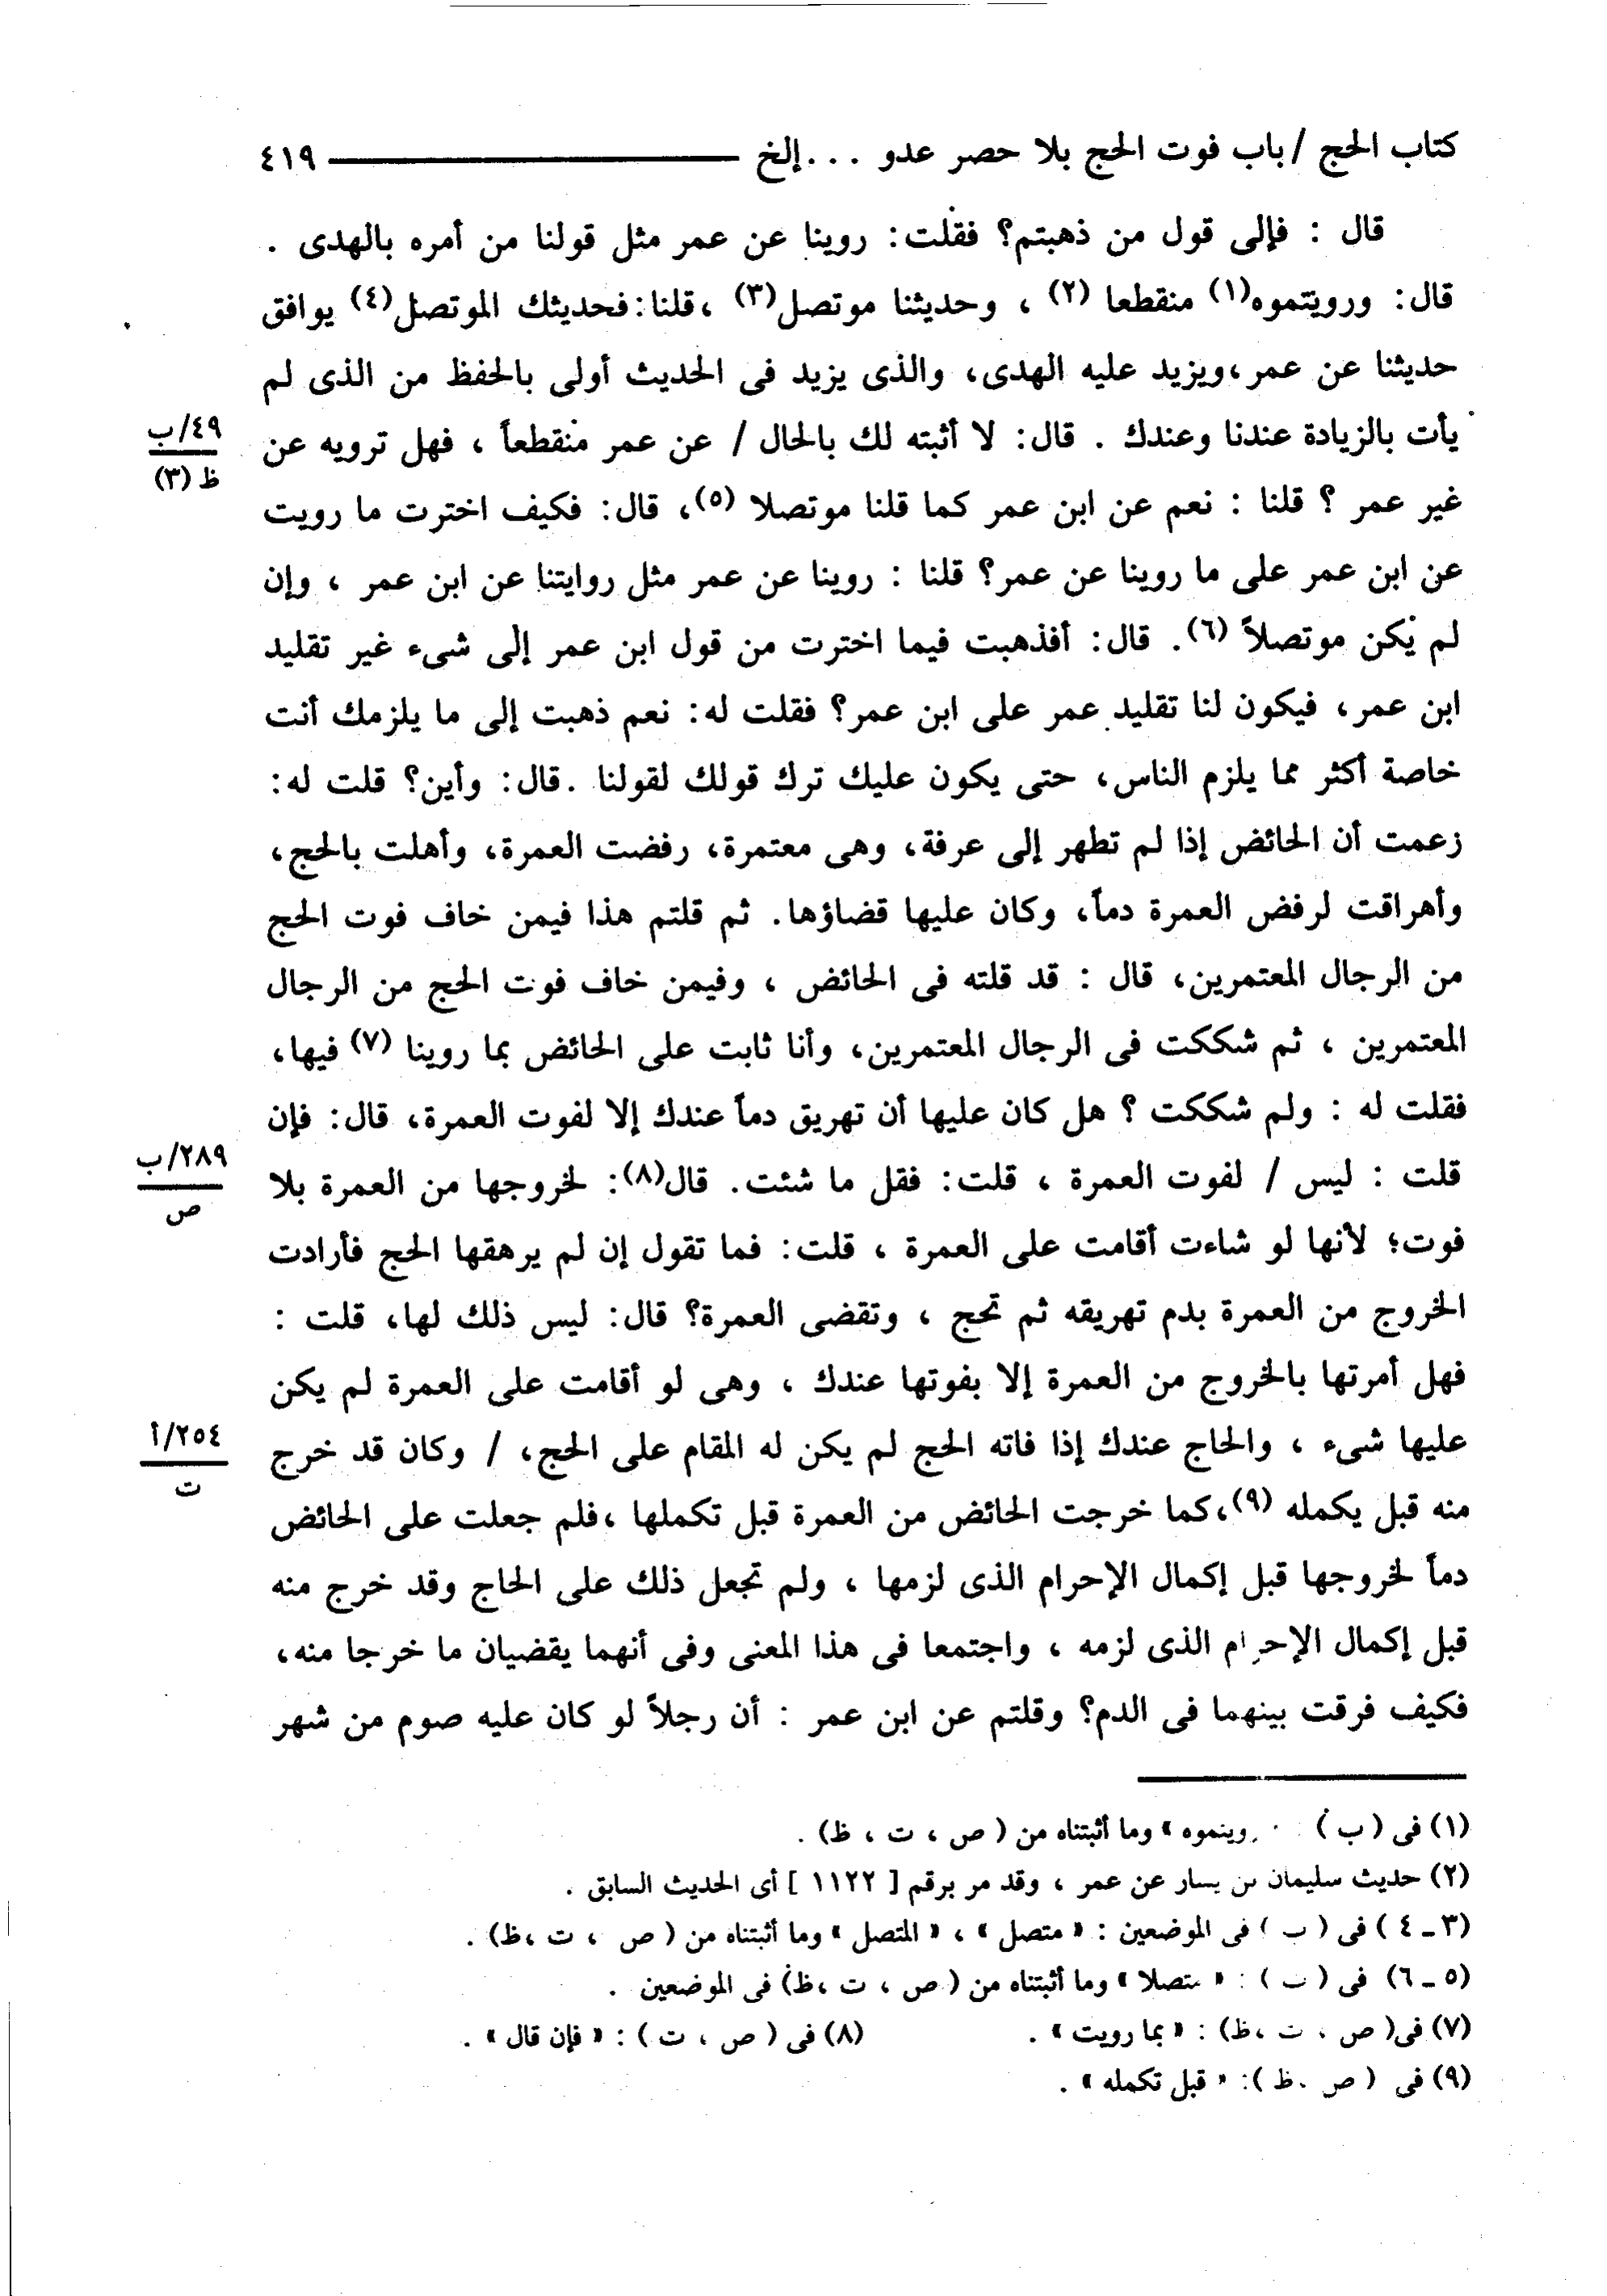 كتاب الحج / باب فوت الحج بلا حصر عدو ... إلخ ٤١٩
قال : فإلى قول من ذهبتم؟ فقلت: روينا عن عمر مثل قولنا من أمره بالهدى .
قال: ورويتموه(١) منقطعا (٢) ، وحديثنا موتصل(٣) ،قلنا:فحديثك الموتصل(٤) يوافق
حديثنا عن عمر،ويزيد عليه الهدى، والذى يزيد فى الحديث أولى بالحفظ من الذى لم
يأت بالزيادة عندنا وعندك . قال: لا أثبته لك بالحال / عن عمر منقطعاً ، فهل ترويه عن
٤٩/ب
ظ (٣)
غير عمر ؟ قلنا : نعم عن ابن عمر كما قلنا موتصلا (٥)، قال: فكيف اخترت ما رويت
عن ابن عمر على ما روينا عن عمر؟ قلنا : روينا عن عمر مثل روايتنا عن ابن عمر ، وإن
لم يكن موتصلاً (٦). قال: أفذهبت فيما اخترت من قول ابن عمر إلى شىء غير تقليد
ابن عمر، فيكون لنا تقليد عمر على ابن عمر؟ فقلت له: نعم ذهبت إلى ما يلزمك أنت
خاصة أكثر مما يلزم الناس، حتى يكون عليك ترك قولك لقولنا .قال: وأين؟ قلت له:
زعمت أن الحائض إذا لم تطهر إلى عرفة، وهى معتمرة، رفضت العمرة، وأهلت بالحج،
وأهراقت لرفض العمرة دماً، وكان عليها قضاؤها. ثم قلتم هذا فيمن خاف فوت الحج
من الرجال المعتمرين، قال : قد قلته فى الحائض ، وفيمن خاف فوت الحج من الرجال
المعتمرين ، ثم شككت فى الرجال المعتمرين، وأنا ثابت على الحائض بما روينا (٧) فيها،
فقلت له : ولم شككت ؟ هل كان عليها أن تهريق دماً عندك إلا لفوت العمرة، قال: فإن
قلت : ليس / لفوت العمرة ، قلت: فقل ما شئت. قال(٨): لخروجها من العمرة بلا
٢٨٩/ب
ص
فوت؛ لأنها لو شاءت أقامت على العمرة ، قلت: فما تقول إن لم يرهقها الحج فأرادت
الخروج من العمرة بدم تهريقه ثم تحج ، وتقضى العمرة؟ قال: ليس ذلك لها، قلت :
فهل أمرتها بالخروج من العمرة إلا بفوتها عندك ، وهى لو أقامت على العمرة لم يكن
عليها شىء ، والحاج عندك إذا فاته الحج لم يكن له المقام على الحج، / وكان قد خرج
٢٥٤/أ
ت
منه قبل يكمله (٩)،كما خرجت الحائض من العمرة قبل تكملها ،فلم جعلت على الحائض
دماً لخروجها قبل إكمال الإحرام الذى لزمها ، ولم تجعل ذلك على الحاج وقد خرج منه
قبل إكمال الإحرام الذى لزمه ، واجتمعا فى هذا المعنى وفى أنهما يقضيان ما خرجا منه،
فكيف فرقت بينهما فى الدم؟ وقلتم عن ابن عمر : أن رجلاً لو كان عليه صوم من شهر
(١) فى ( ب ) : وما أثبتناه من ( ص ، ت ، ظ) .
(٢) حديث سليمان بن يسار عن عمر ، وقد مر برقم [ ١١٢٢ ] أى الحديث السابق .
(٣ـ ٤ ) فى ( ب ) فى الموضعين : « متصل » ، « المتصل » وما أثبتناه من ( ص ، ت ،ظ) .
(٥ ـ ٦) فى ( ب ) : « متصلا » وما أثبتناه من ( ص ، ت ،ظ) فى الموضعين .
(٧) فى( ص ، ت ،ظ) : « بما رويت » . (٨) فى ( ص ، ت ) : « فإن قال » .
(٩) فى ( ص ، ظ ): « قبل تكمله » .